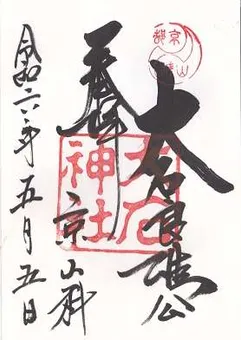 大石良雄公
奉拝
京山科
令和六年五月五日
大石神社
京都